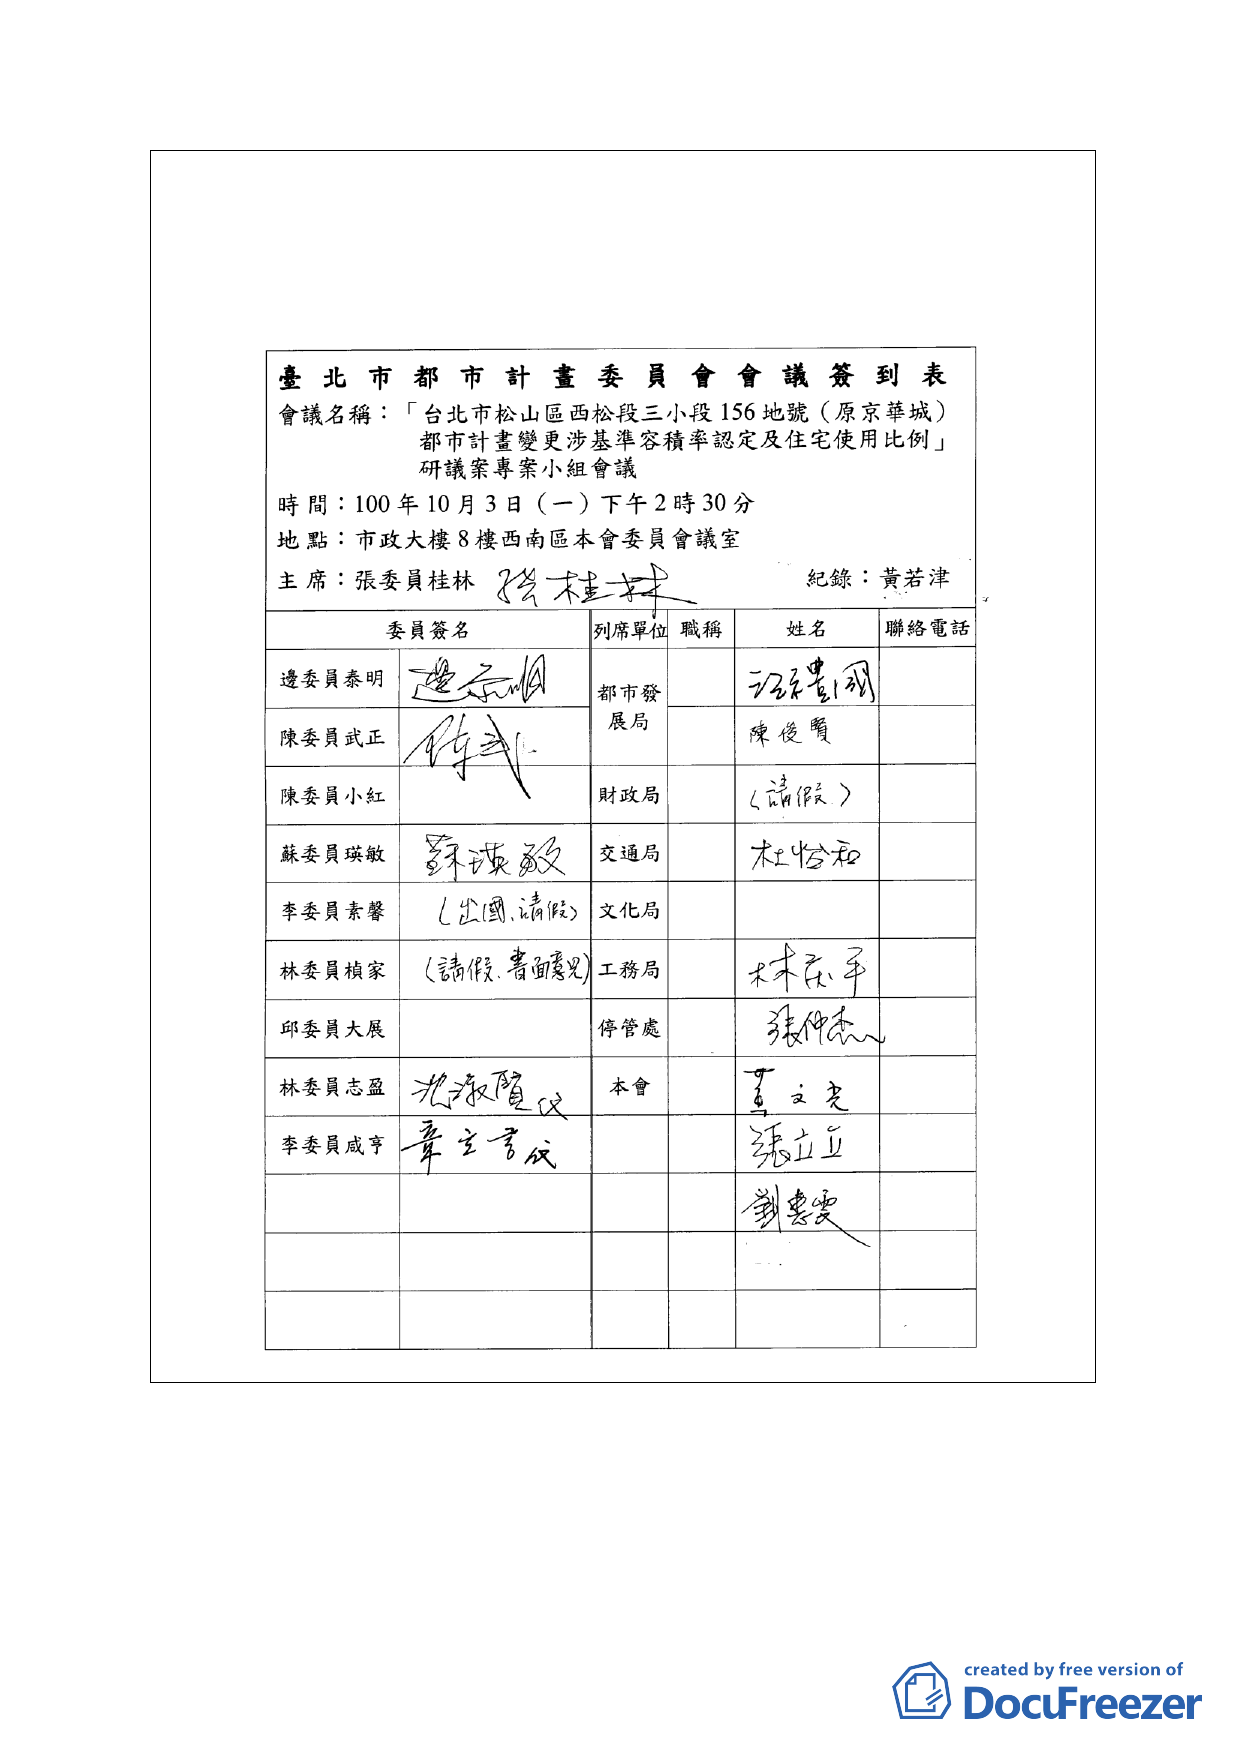 臺北市都市計畫委員會會議簽到表
會議名稱：「台北市松山區西松段三小段156地號（原京華城）
都市計畫變更涉基準容積率認定及住宅使用比例」
研議案專案小組會議
時間：100年10月3日（一）下午2時30分
地點：市政大樓8樓西南區本會委員會議室
主席：張委員桂林 張桂林 紀錄：黃若津
委員簽名 列席單位 職稱 姓名 聯絡電話
邊委員泰明 邊泰明 都市發展局
陳委員武正 陳武正 陳俊賢
陳委員小紅 財政局 （請假）
蘇委員瑛敏 蘇瑛敏 交通局 杜怡和
李委員素馨 （出國、請假） 文化局
林委員楨家 （請假、書面意見） 工務局
邱委員大展 停管處 張仲杰
林委員志盈 沈淑賢代 本會 黃文光
李委員咸亨 章立言代 張立立
劉惠雯
created by free version of
DocuFreezer